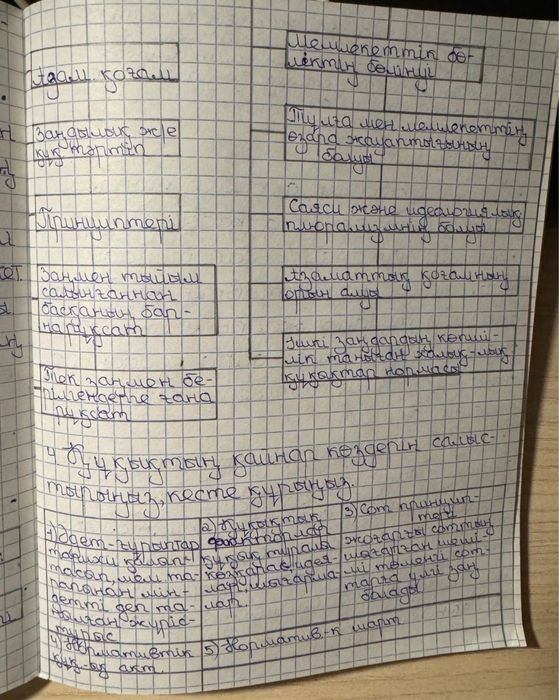 Адам қоғам
Заңдылық же
құқ тәртіп
Принциптері
Заңмен тыйым
салынғаннан
басқаның бар-
на рұқсат
Тек заңмен бе-
рілгендерге ғана
рұқсат
Мемлекеттік бө-
ліктің бөлінуі
Тұлға мен мемлекеттің
өзара жауаптығының
болуы
Саяси және идеологиялық
плюрализмнің болуы
Азаматтық қоғамның
орын алуы
Ішкі заңдардың көпші-
лік таныған халық-лық
құқықтар нормасы
4 Құқықтың қайнар көздерін салыс-
тырыңыз, кесте құрыңыз.
1) Әдет-ғұрыптар
тарихи қалып-
тасып, мем та-
рапынан мін-
детті деп та-
нылған жүріс-
тұрыс
2) Құқықтық
доктриналар
Құқық туралы
көзқарас, идея-
лар, шығарма-
лар.
3) Сот принцип-
тері
жоғарғы соттың
шығарған шеші-
мі төменгі сот-
тарға үлгі заң
болады
4) Нормативтік
құқ-қ акт.
5) Норматив-к шарт